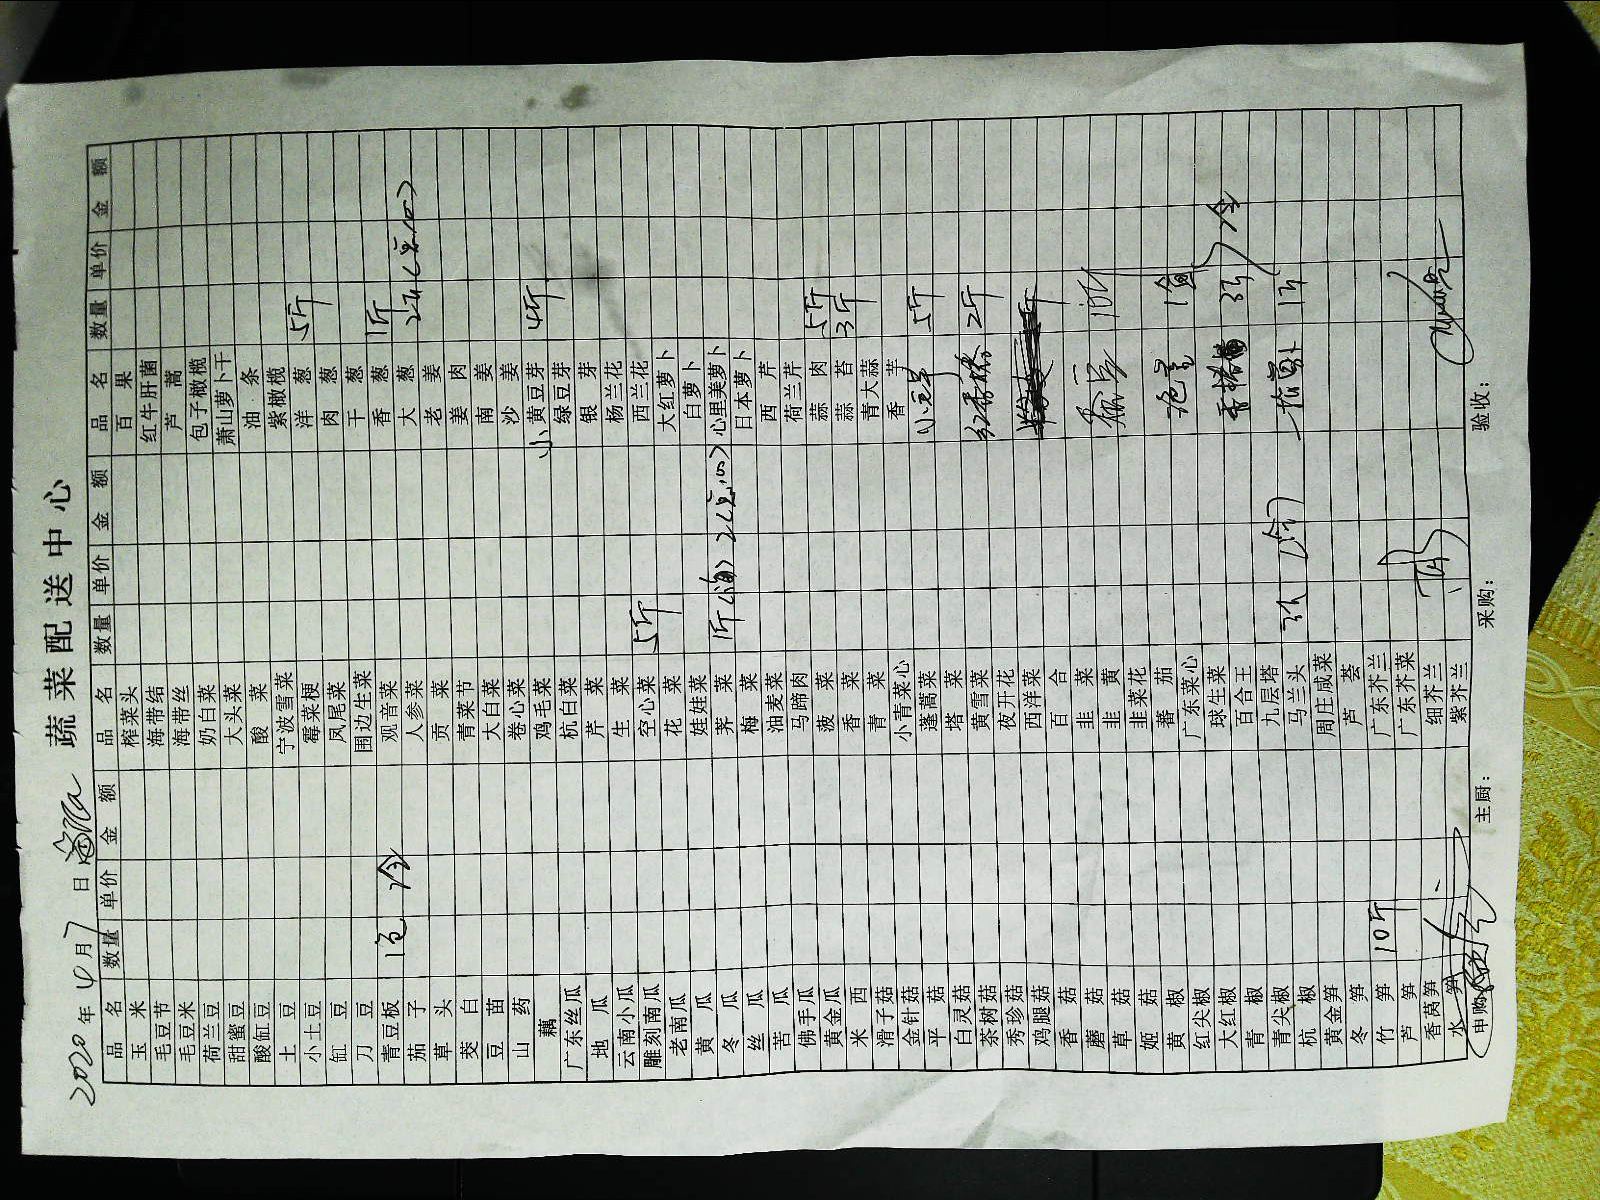 2020年4月7日
蔬菜配送中心
品名 数量 单价 金额 品名 数量 单价 金额 品名 数量 单价 金额
玉米 榨菜头 百果
毛豆节 海带结 红牛肝菌
毛豆米 海带丝 芦蒿
荷兰豆 奶白菜 包子橄榄
甜蜜豆 大头菜 萧山萝卜干
酸缸豆 酸菜 油条
土豆 宁波雪菜 紫橄榄
小土豆 霉菜梗 洋葱 5斤
缸豆 凤尾菜 肉葱
刀豆 围边生菜 干葱
青豆板 1包 冷 观音菜 香葱 1斤
茄子 人参菜 大葱 2斤(点心)
草头 贡菜 老姜
茭白 青菜节 姜肉
豆苗 大白菜 南姜
山药 卷心菜 沙姜
藕 鸡毛菜 小黄豆芽 4斤
广东丝瓜 杭白菜 绿豆芽
地瓜 芹菜 银芽
云南小瓜 生菜 杨兰花
雕刻南瓜 空心菜 5斤 西兰花
老南瓜 花菜 大红萝卜
黄瓜 娃娃菜 白萝卜
冬瓜 荠菜 1斤 2(点心) 心里美萝卜
丝瓜 梅菜 日本萝卜
苦瓜 油麦菜 西芹
佛手瓜 马蹄肉 荷兰芹
黄金瓜 菠菜 蒜肉 5斤
米西 香菜 蒜苔 3斤
滑子菇 青菜 青大蒜
金针菇 小青菜心 香芋
平菇 蓬蒿菜 5斤
白灵菇 塔菜
茶树菇 黄雪菜 2斤
秀珍菇 夜开花
鸡腿菇 西洋菜
香菇 百合
蘑菇 韭菜
草菇 韭黄
姬菇 韭菜花
黄椒 蕃茄 1盒
红尖椒 广东菜心
大红椒 球生菜 3斤 冷
青椒 百合王
青尖椒 九层塔 1斤
杭椒 马兰头 3斤 (冷)
黄金笋 周庄咸菜
冬笋 芦荟
竹笋 10斤 广东芥兰
芦笋 广东芥菜
香莴笋 细芥兰
水笋 紫芥兰
申购: 主厨: 采购: 验收: